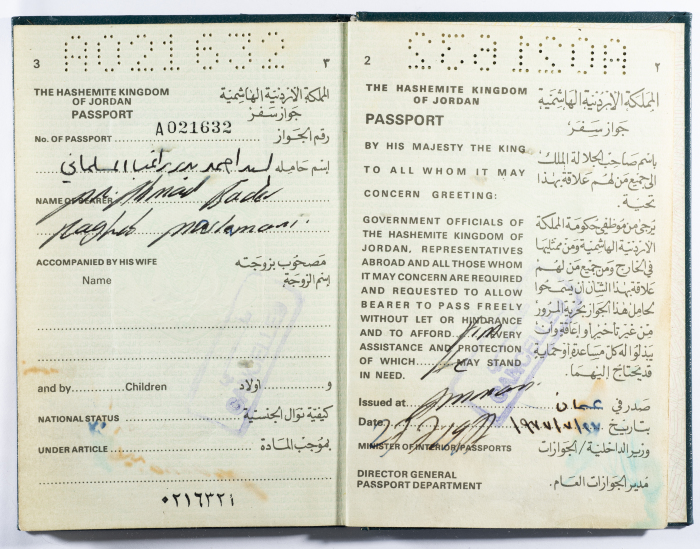 A021632
3
٣
THE HASHEMITE KINGDOM
OF JORDAN
PASSPORT
المملكة الاردنية الهاشمية
جواز سفر
No. OF PASSPORT A021632 رقم الجواز
السيد احمد بدر راغب السلماني اسم حامله
NAME OF BEARER Mr. Ahmad Bader
Ragheb
ACCOMPANIED BY HIS WIFE مصحوب بزوجته
Name اسم الزوجة
and by Children و اولاد
NATIONAL STATUS كيفية نوال الجنسية
UNDER ARTICLE بموجب المادة
٠٢١٦٣٢
A021632
2
٢
THE HASHEMITE KINGDOM
OF JORDAN
PASSPORT
المملكة الاردنية الهاشمية
جواز سفر
BY HIS MAJESTY THE KING
TO ALL WHOM IT MAY
CONCERN GREETING:
باسم صاحب الجلالة الملك
الى جميع من لهم علاقة بهذا
تحية.
GOVERNMENT OFFICIALS OF
THE HASHEMITE KINGDOM OF
JORDAN, REPRESENTATIVES
ABROAD AND ALL THOSE WHOM
IT MAY CONCERN ARE REQUIRED
AND REQUESTED TO ALLOW
BEARER TO PASS FREELY
WITHOUT LET OR HINDRANCE
AND TO AFFORD him EVERY
ASSISTANCE AND PROTECTION
OF WHICH he MAY STAND
IN NEED.
يرجى من موظفي حكومة المملكة
الاردنية الهاشمية ومن ممثليها
في الخارج ومن جميع من لهم
علاقة بهذا الشأن ان يسمحوا
لحامل هذا الجواز بحرية المرور
من غير تأخير او إعاقة وان
يبذلوا له كل مساعدة او حماية
قد يحتاج إليهما.
Issued at Amman عمان صدر في
Date بتاريخ
MINISTER OF INTERIOR/PASSPORTS وزير الداخلية/الجوازات
DIRECTOR GENERAL
PASSPORT DEPARTMENT
مدير الجوازات العام.